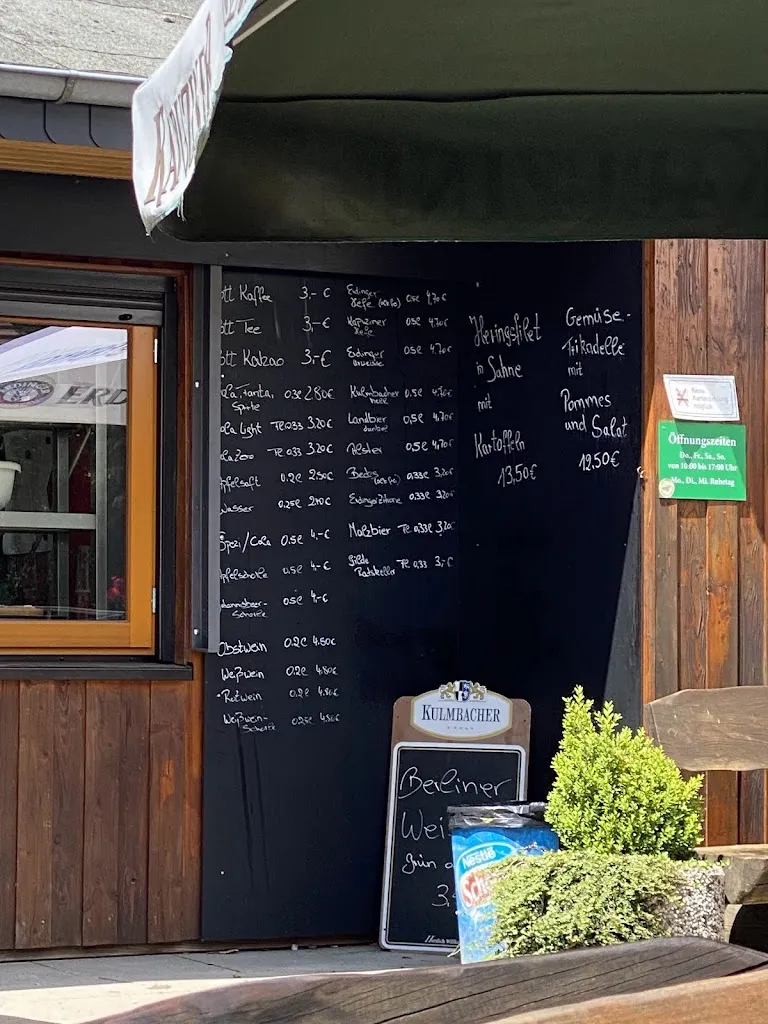 ERD
ott Kaffee 3,- €
ott Tee 3,- €
ott Kakao 3,- €
Cola, Fanta, 0,3l 2,80€
Sprite
Cola light 0,33 3,20€
Cola Zero 0,33 3,20€
Apfelsaft 0,2l 2,50€
Wasser 0,25l
Spezi/Cola 0,5l 4,-€
Apfelschorle 0,5l 4,-€
Schorle 0,5l 4,-€
Obstwein 0,2l 4.50€
Weißwein 0,2l 4.80€
Rotwein 0,2l 4.80€
Weißwein-
Schorle 0,25l 4.80€
Erdinger 0,5l 4,70€
Hefe
0,5l 4,70€
Hefe
Erdinger 0,5l 4,70€
Kulmbacher 0,5l 4,70€
Landbier 0,5l 4,70€
dunkel
Alster 0,5l 4,70€
0,33l 3,20€
0,33l 3,20€
Malzbier 0,33l 3,20€
Gilde 0,33 3,-€
Ratskeller
Heringsfilet
in Sahne
mit
Kartoffeln
13,50€
Gemüse-
Frikadelle
mit
Pommes
und Salat
12,50€
Keine
Kartenzahlung
möglich
Öffnungszeiten
Do., Fr., Sa., So.
von 10:00 bis 17:00 Uhr
Mo., Di., Mi. Ruhetag
KULMBACHER
Berliner
Wei
grün o
3,
Herzlich Will
Nestlé
Schö